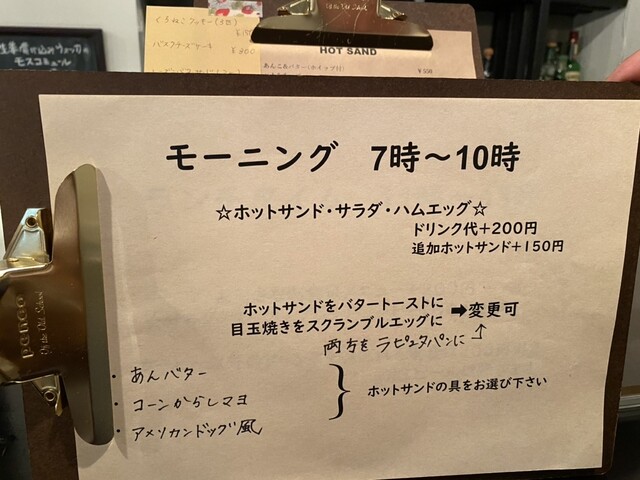 くろねこクッキー(3包)
バスクチーズケーキ
¥300
HOT SAND
あんこ&バター(ホイップ付)
¥500
モスコミュール
モーニング 7時～10時
☆ホットサンド・サラダ・ハムエッグ☆
ドリンク代+200円
追加ホットサンド+150円
ホットサンドをバタートーストに
目玉焼きをスクランブルエッグに
➡変更可
両方を ラピュタパンに
・あんバター
・コーンからしマヨ
・アメリカンドッグ風
ホットサンドの具をお選び下さい
penco